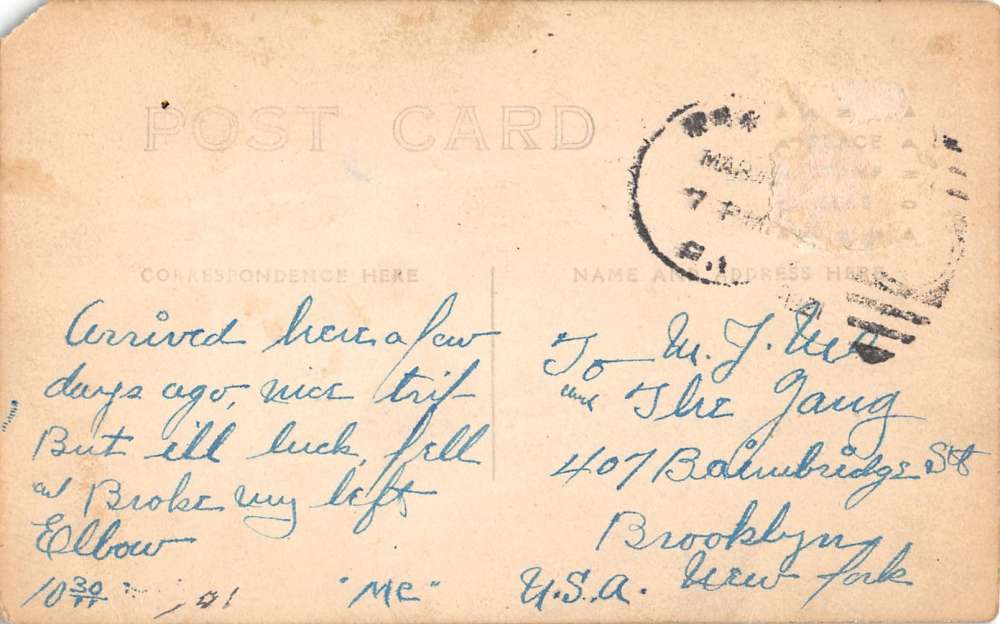 POST CARD
PLACE
MAR
7 PM
CORRESPONDENCE HERE
NAME AND ADDRESS HERE
Arrived here a few
days ago, nice trip
But ill luck, fell
and Broke my left
Elbow
"ME"
To M. J.
and The Gang
407 Bainbridge St
Brooklyn
New York
U.S.A.